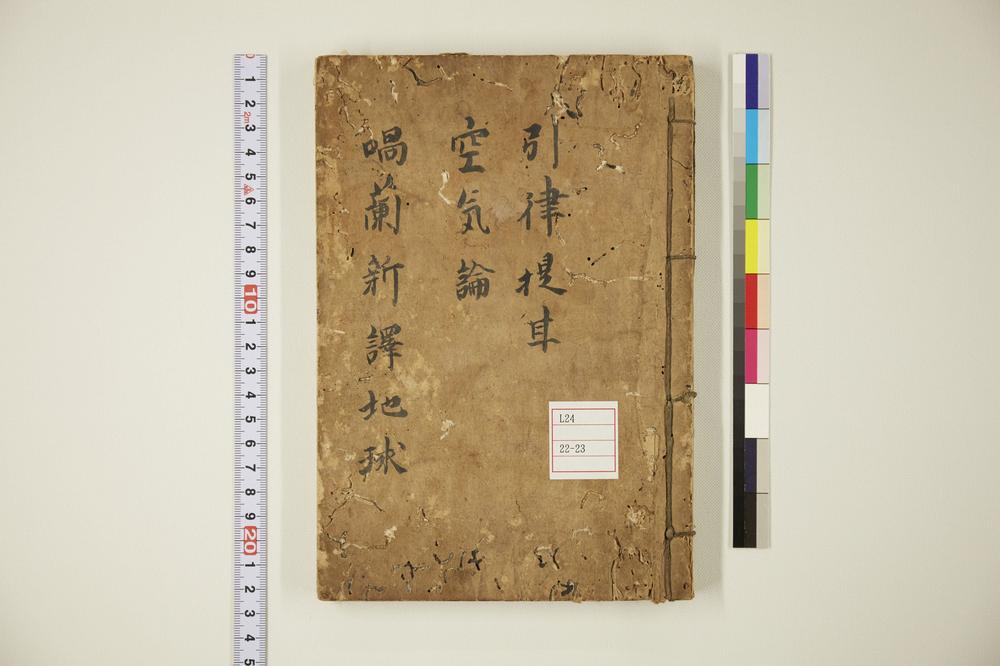 引律提耳
空気論
喎蘭新譯地球
L24
22-23
1
2
2m
3
4
5
6
7
8
9
10
1
2
3
4
5
6
7
8
9
20
1
2
3
4
5